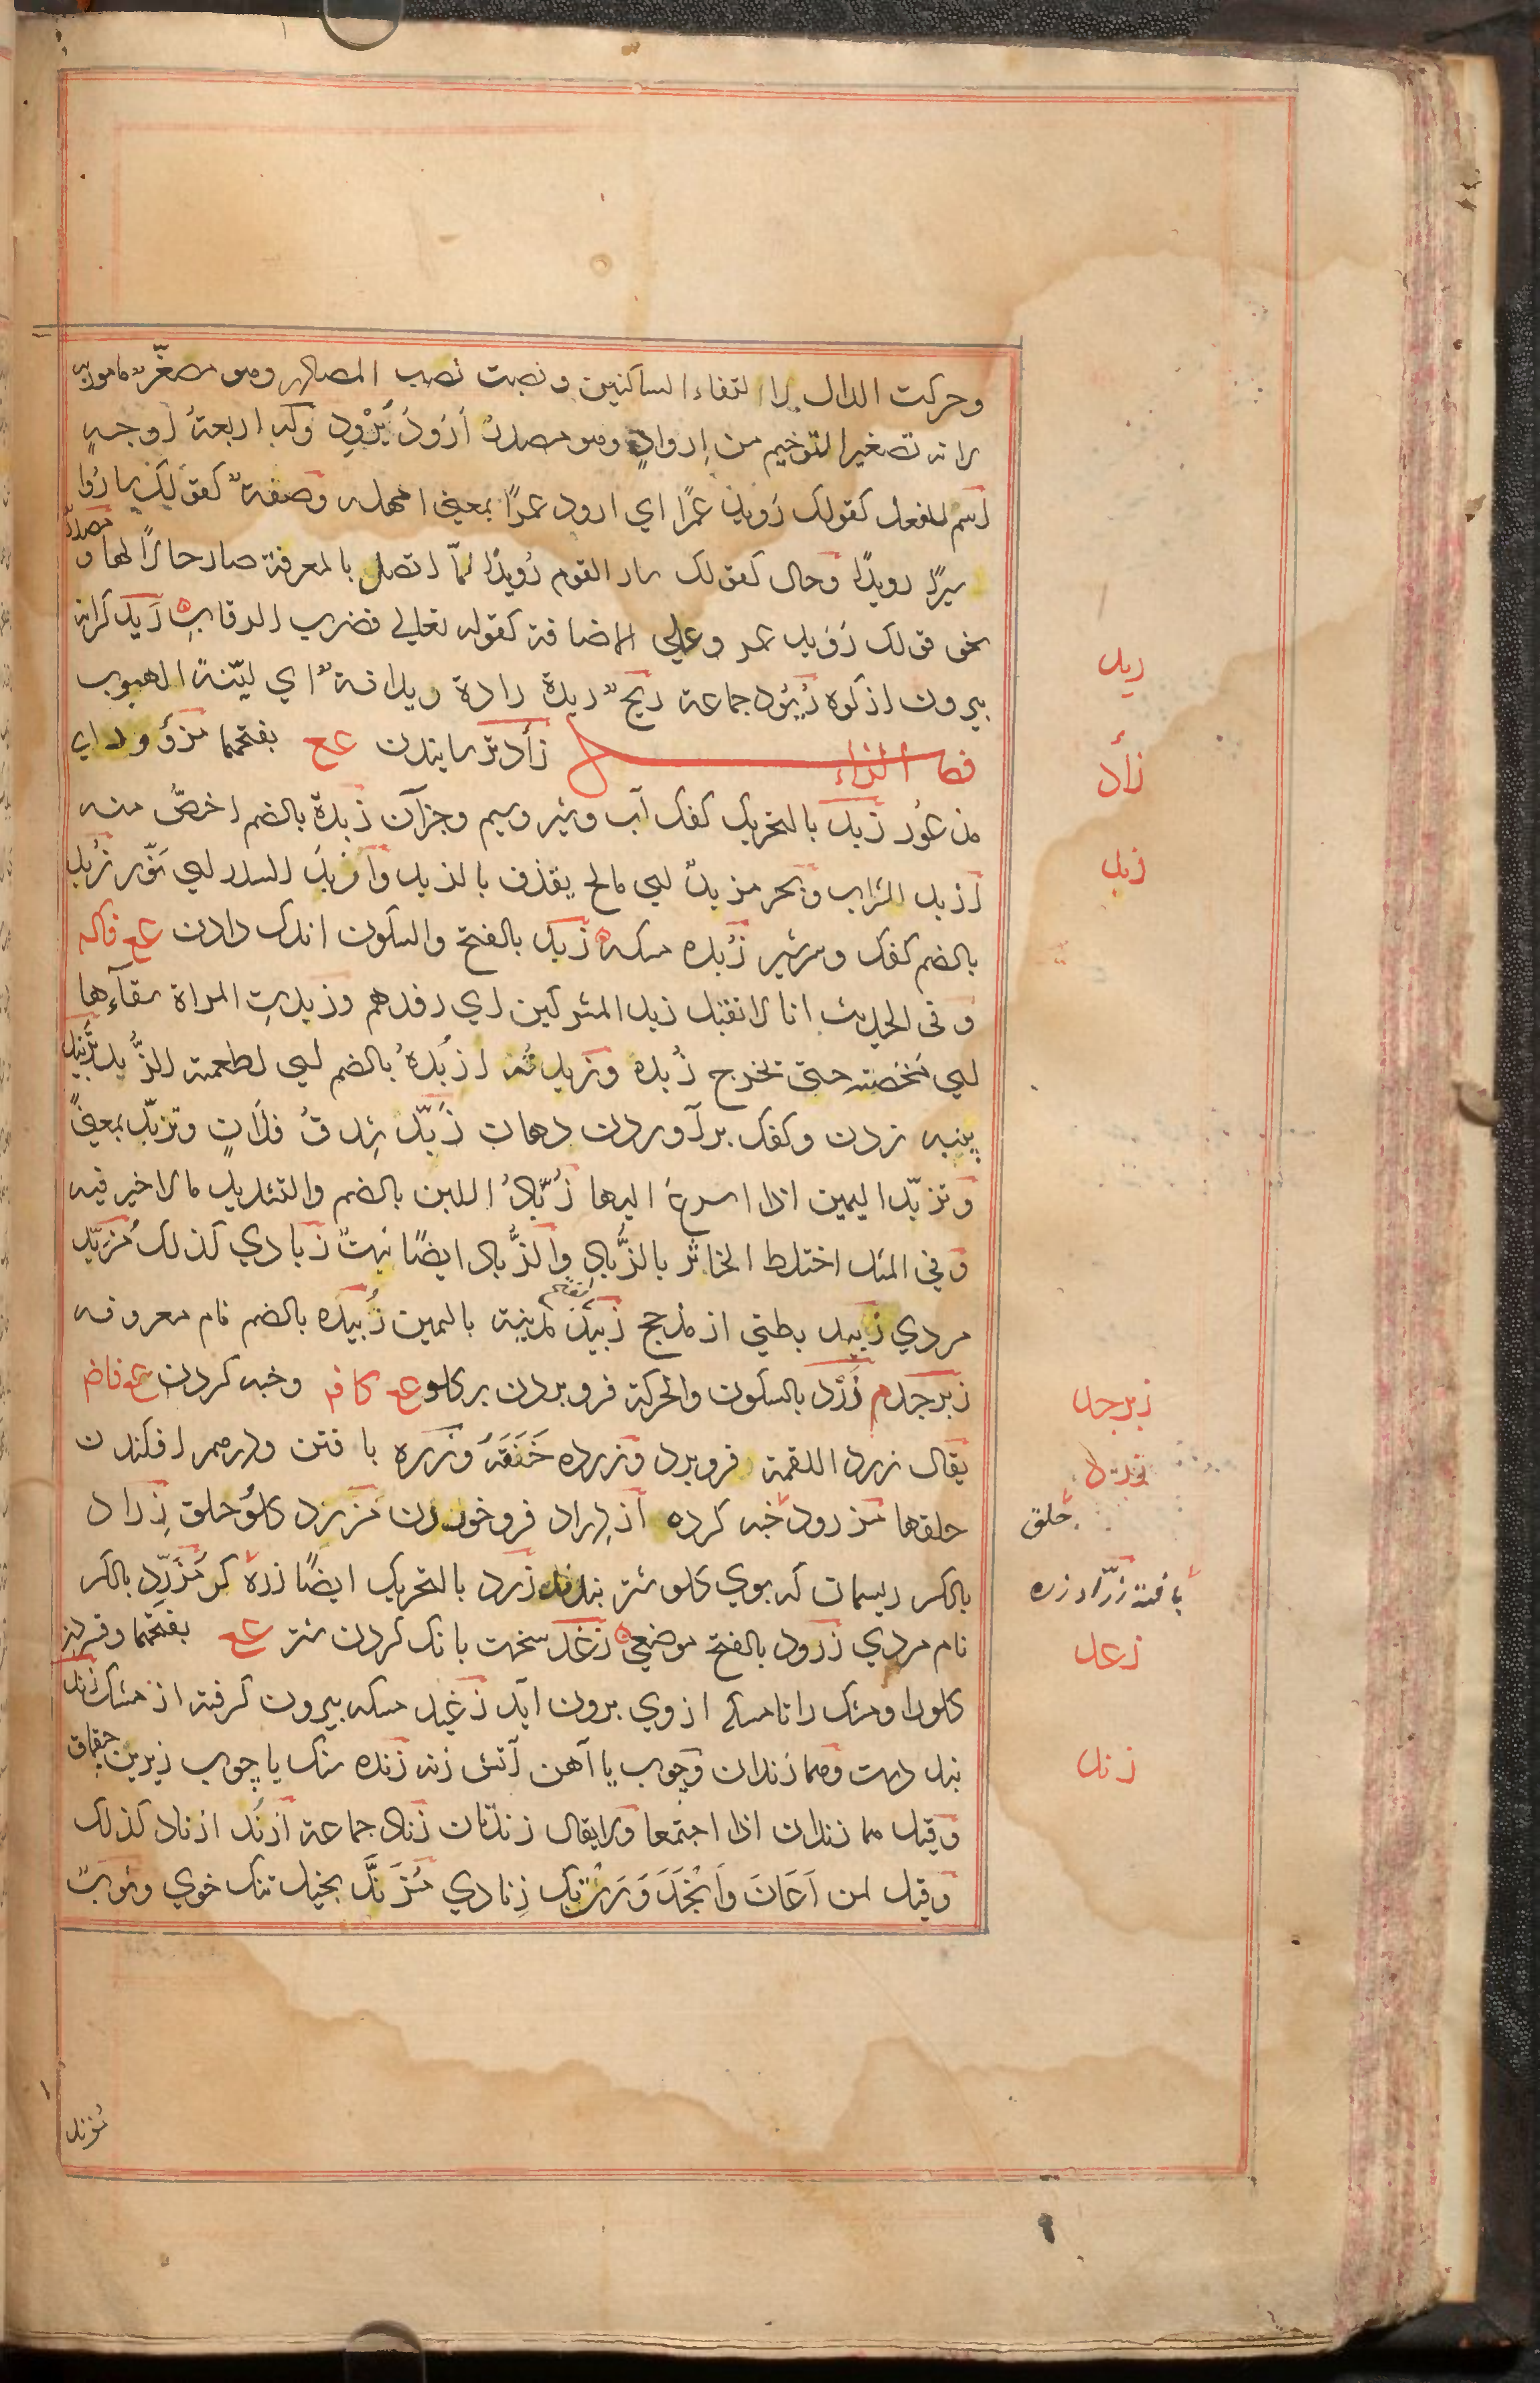 وحركت الدال لالتقاء الساكنين ونصبت نصب المصادر وهو مصغّر مامور به
لانه تصغير الترخيم من اِرواد وهو مصدر اَرْوَدَ يُرْوِد وله اربعة اوجه
اسم للفعل كقولك رُوَيدَ عَمرًا اي ارود عمرًا بمعنى امهله وصفة كقولك ساروا
سيرًا رويدًا وحال كقولك سار القوم رُويدًا لمّا اتصل بالمعرفة صار حالاً لها ومصدر
نحو قولك رُوَيد عمرو على الاضافة كقوله تعالى فضرب الرقاب رَيد كرانه
بيرون از كوه رُيُود جماعة ريحٌ ريدة رادة وريدانة اي ليّنة الهبوب
فصل الزاء زأد ترسانيدن ع ع بفتحهما مزؤود اي
مذعُور زبد بالتحريك كفك آب وشير وسيم وجزآن زُبدة بالضم اخصّ منه
ازبد الشراب وبحر مزبد اي مالح يقذف بالزبد وازبد السدر اي نَوّر زُبد
بالضم كفك وسرشير زُبده مسكه زَبد بالفتح والسكون اندك دادن ع ع فاكه
وفي الحديث انا لا نقبل زبد المشركين اي رفدهم وزبدتِ المراة سقاءها
اي مَخَضته حتى تخرج زُبده وزبدته ازبُدهُ بالضم اي اطعمته الزُّبد تزبيد
پنبه زدن وكفك برآوردن دهان زَبّد شِدقُ فلانٍ وتزبّد بمعنىً
وتزبّد اليمين اذا اسرع اليها زُبّادُ اللبن بالضم والتشديد ما لا خير فيه
وفي المثل اختلط الخاثر بالزُّباد والزُّباد ايضًا نبت زبادي كذلك مُزبّد
مردي زبيد بطني از مذحج زَبيد بفتح مدينة باليمن زُبيده بالضم نام معروفه
زبرجد م زَرْد بالسكون والحركة فروبردن بر كلو ع ع كا فه وخبه كردن ع ع فاض
يقال زرد اللقمة فروبرد وزرده خَنَقَهُ وزره بافتن ودرهم افكندن
حلقها مزرود خبه كرده ازدراد فرو خوردن مزرد كلو حلق زِراد
بالكسر ريسمان كه بوي كلو شتر بندند زَرد بالتحريك ايضًا زره كر مُزَرِّد بالكسر
نام مردي زرود بالفتح موضعي زَغد سخت بانك كردن شتر ع ع بفتحهما وفشردن
كلو را ومشك را تا مسكه از وي برون آيد زغيد مسكه بيرون كرفته از مشك زند
بند دست وهما زَندان وچوب يا آهن آتش زنه زنده سنك يا چوب زيرين چقماق
وقيل هما زندان اذا اجتمعا ولا يقال زندتان زناد جماعة ازند ازناد كذلك
وقيل لمن اَعَانَ وَاَنْجَدَ وَرَتْ بك زِنادي مُزَنَّد بخيل تنك خوي وثوبٌ
ريد
زأد
زبد
زبرجد
زرد
حلق
بافتنه زرّاد زره
زغد
زند
مزند